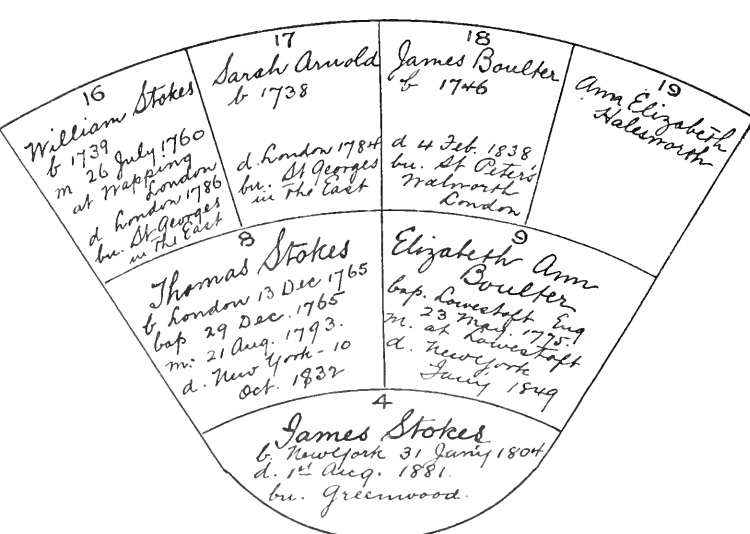 16
William Stokes
b 1739
m 26 July 1760
at Wapping
London
d London 1786
bu. St Georges
in the East
17
Sarah Arnold
b 1738
d. London 1784
bu. St Georges
in the East
18
James Boulter
b 1746
d 4 Feb. 1838
bu. St Peter's
Walworth
London
19
Ann Elizabeth
Halesworth
8
Thomas Stokes
b London 13 Dec 1765
bap 29 Dec. 1765
m: 21 Aug. 1793.
d. New York - 10
Oct. 1832
9
Elizabeth Ann
Boulter
bap. Lowestoft Eng
23 May. 1775.
m. at Lowestoft
d. New York
Jan'y 1849
4
James Stokes
b. New York 31 Jan'y 1804
d. 1st Aug. 1881.
bu. Greenwood.